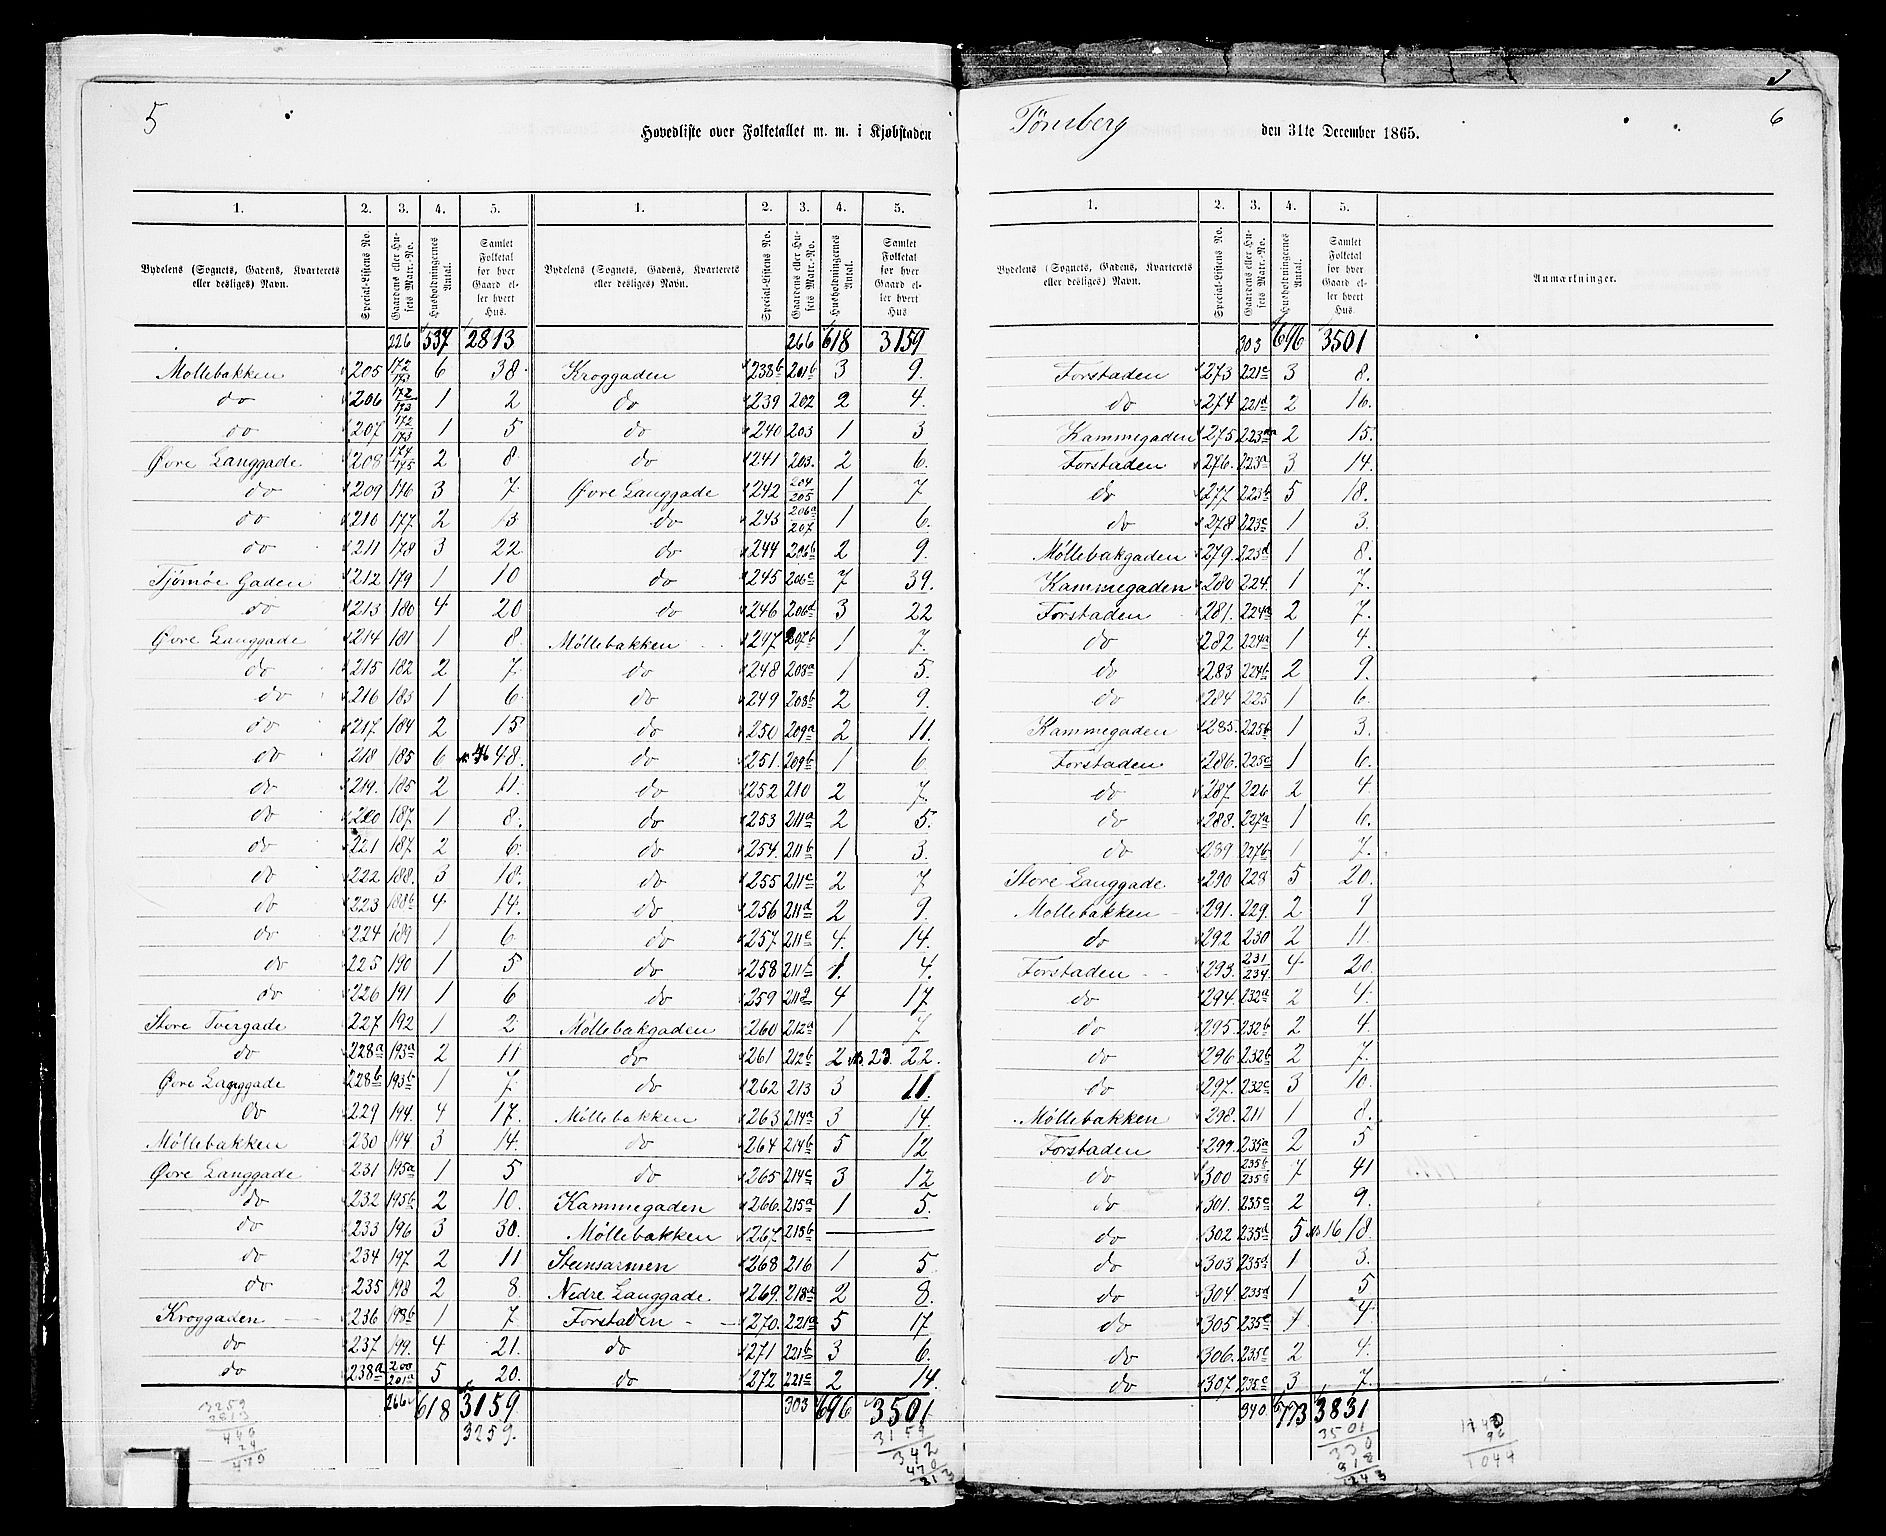 5
Hovedliste over Folketallet m. m. i Kjøbstaden
1. 2. 3. 4. 5. 1. 2. 3. 4. 5.
Bydelens (Sognets, Gadens, Kvarterets eller desliges) Navn. Special-Listens No. Gaardens eller Husets Matr.-No. Husholdningernes Antal. Samlet Folketal for hver Gaard eller hvert Hus. Bydelens (Sognets, Gadens, Kvarterets eller desliges) Navn. Special-Listens No. Gaardens eller Husets Matr.-No. Husholdningernes Antal. Samlet Folketal for hver Gaard eller hvert Hus
226 537 2813 266 618 3159
Møllebakken 205 172/173 6 38 Kroggaden 238b 201b 3 9.
do 206 172/173 1 2 do 239 202 2 4.
do 207 172/173 1 5 do 240 203 1 3
Øvre Langgade 208 174/175 2 8 do 241 203. 2 6.
do 209 176 3 7 Øvre Langgade 242 204/205 1 7
do 210 177 2 13 do 243 206a/207 1 6.
do 211 178 3 22 do 244 206b 2 9.
Tjømøe Gaden 212 179 1 10 do 245 206c 7 39.
do 213 180 4 20 do 246 206d 3 22
Øvre Langgade 214 181 1 8. Møllebakken 247 207b 1 7.
do 215 182 2 7. do 248 208a 1 5.
do 216 183 1 6. do 249 208b 2 9.
do 217. 184 2 15 do 250 209a 2 11.
do 218 185 6 46 48. do 251. 209b 1 6.
do 219. 185 2 11. do 252 210 2 7.
do 220 187 1 8. do 253 211a 2 5.
do 221 187 2 6. do 254. 211b 1 3.
do 222 188. 3 18. do 255 211c 2 7
do 223 188b 4 14. do 256 211d 2 9.
do 224 189 1 6. do 257 211e 4. 14.
do 225 190 1 5 do 258 211f 1. 4.
do 226 191 1 6 do 259 211g 4 17
Store Tvergade 227 192 1 2 Møllebakgaden 260 212a 1 7
do 228a 193a 2 11 do 261 212b 2 23 22.
Øvre Langgade 228b 193b 1 7. do 262 213 3 11.
do 229 194. 4 17. Møllebakken 263 214a 3 14.
Møllebakken 230 194 3 14. do 264 214b 5 12
Øvre Langgade 231 195a 1 5 do 265 214c 3 12
do 232 195b 2 10. Kammegaden 266. 215a 1 5.
do 233 196 3 30. Møllebakken 267 215b — —
do 234 197 2 11 Steensarmen 268 216 1 5.
do 235 198 2 8. Nedre Langgade. 269. 218a 2 8.
Kroggaden 236 198b 1 7 Forstaden 270. 221a 5 17
do 237 199. 4 21. do 271 221b 3 6.
do 238a 200/201a 5 20. do 272 221c 2 14.
266 618 3159 303 696 3501
3259.
3259
2813
446
24
3159
342
470
Tønsberg den 31te December 1865. 6
1. 2. 3. 4. 5.
Bydelens (Sognets, Gadens, Kvarterets eller desliges) Navn. Special-Listens No. Gaardens eller Husets Matr.-No. Husholdningernes Antal. Samlet Folketal for hver Gaard eller hvert Hus. Anmærkninger.
303 696 3501
Forstaden 273 221c 3 8.
do 274 221d 2 16.
Kammegaden 275 223aa 2 15.
Forstaden 276. 223a 3 14.
do 277 223b 5 18.
do 278 223c 1 3.
Møllebakgaden 279. 223d 1 8.
Kammegaden 280 224. 1 7.
Forstaden 281. 224a 2 7.
do 282 224a 1 4.
do 283 224b 2 9.
do 284 225 1 6.
Kammegaden 285. 225b 1 3.
Forstaden 286. 225c 1 6.
do 287. 226 2 4.
do 288. 227a 1 6.
do 289 227b 1 7.
Store Langgade. 290 228 5 20.
Møllebakken 291. 229. 2 9
do 292 230 2 11.
Forstaden 293. 231/234 4 20.
do 294. 232a 2 4.
do 295. 232b 2 4.
do 296 232b 2 7.
do 297. 232c 3 10.
Møllebakken 298. 211 1 8.
Forstaden 299. 235a 2 5
do 300 235b/235c 7 41
do 301. 235c 2 9.
do 302 235d 5 16 18.
do 303 235d 1 3.
do 304. 235d 1 5
do 305 235e 1 4.
do 306. 235e 2 4.
do 307. 235e 3 7.
340 773 3831
3501
330
1243
96
1044